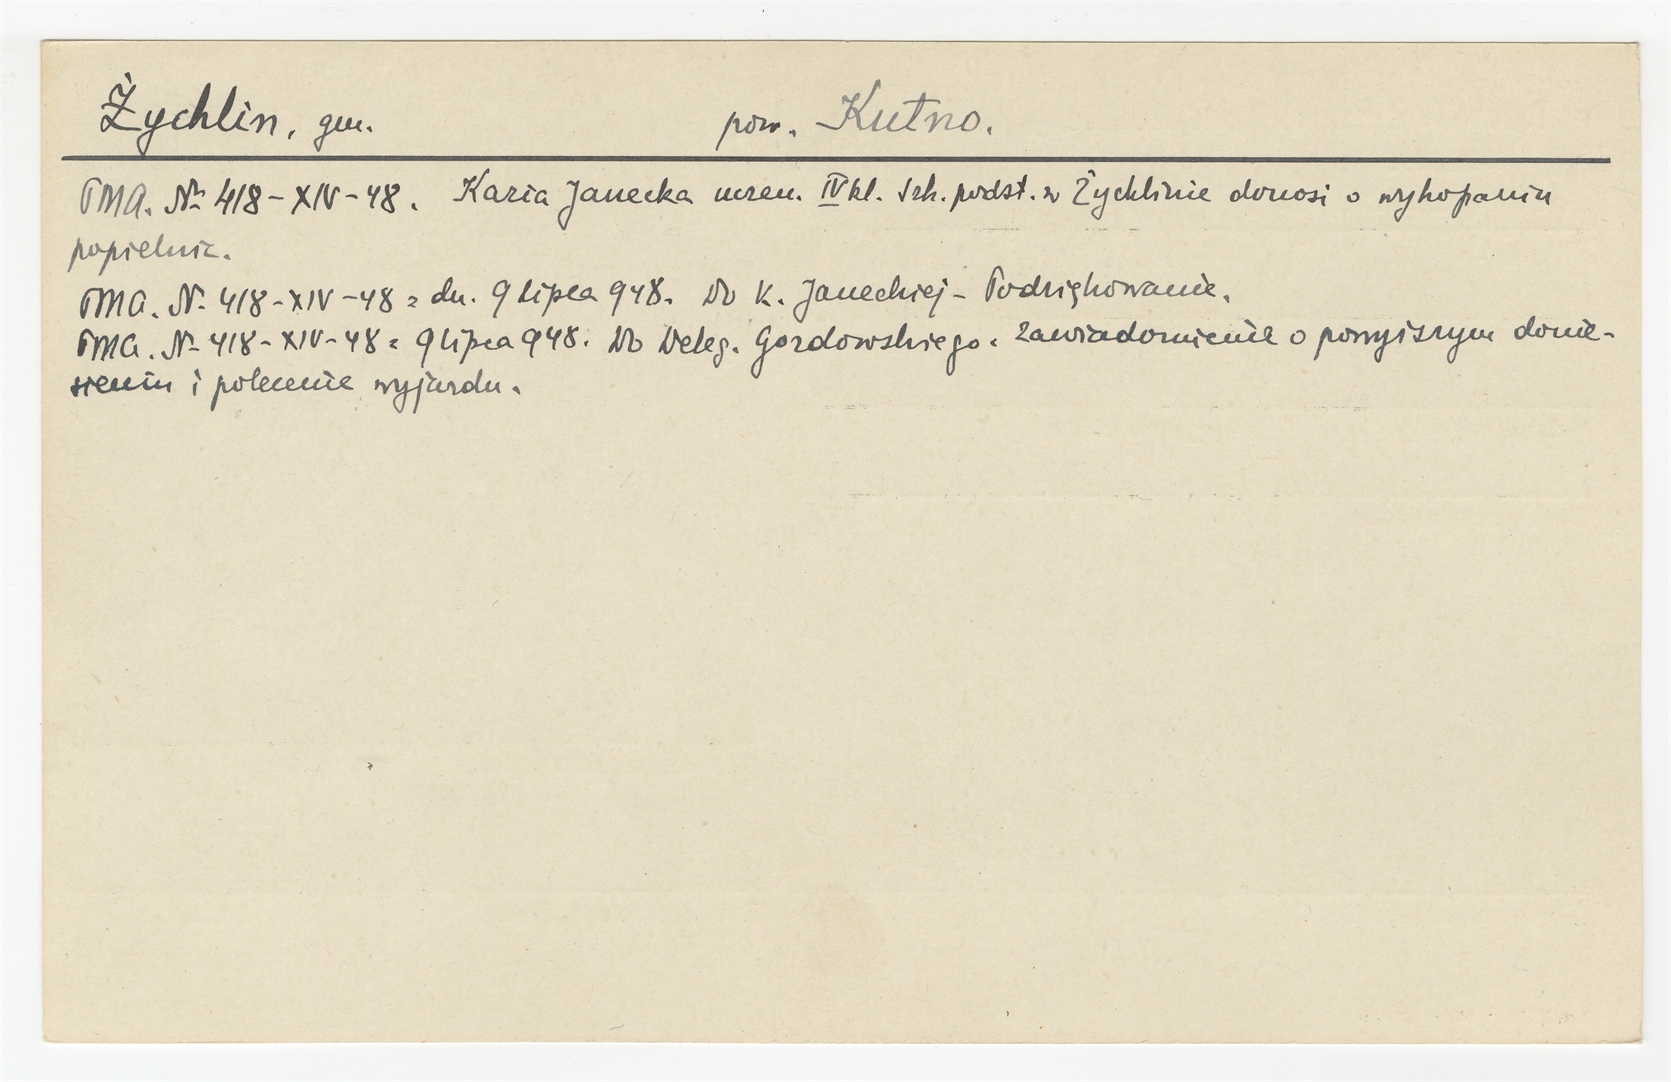 Żychlin, gm. pow. Kutno.
PMA. Nr 418-XIV-48. Kazia Janecka uczen. IV kl. szk. podst. w Żychlinie donosi o wykopaniu
popielnic.
PMA. Nr 418-XIV-48 z dn. 9 lipca 948. Do K. Janeckiej - Podziękowanie.
PMA. Nr 418-XIV-48 z 9 lipca 948. Do Deleg. Gozdowskiego. Zawiadomienie o powyższym donie-
sieniu i polecenie wyjazdu.